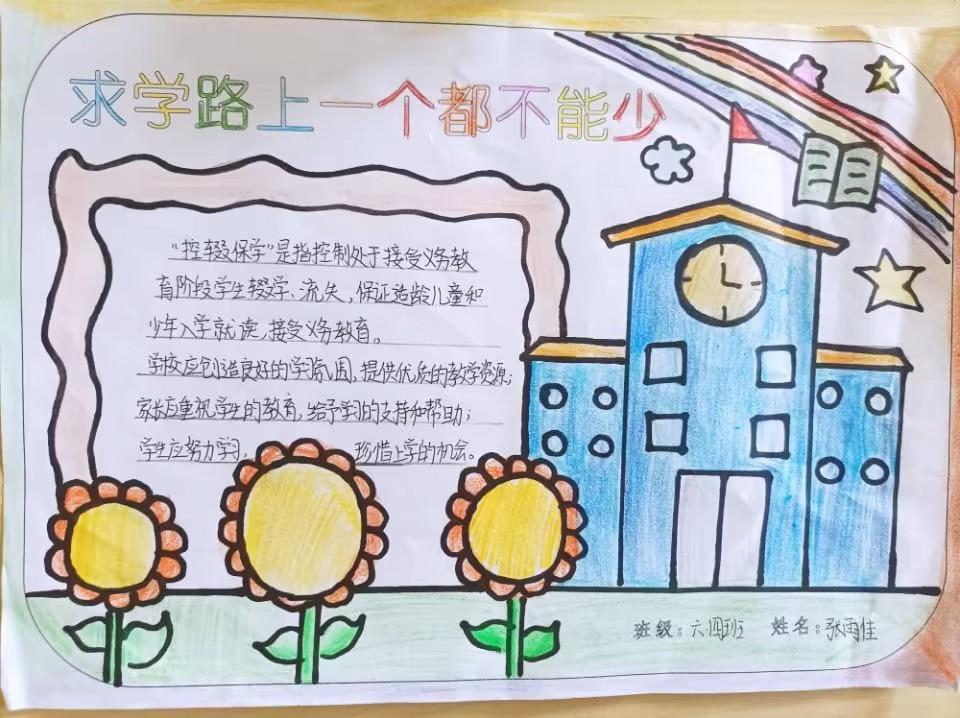 求学路上一个都不能少
“控辍保学”是指控制处于接受义务教
育阶段学生辍学、流失,保证适龄儿童和
少年入学就读,接受义务教育。
学校应创造良好的学习氛围,提供优质的教学资源;
家长应重视学生的教育,给予学习的支持和帮助;
学生应努力学习, 珍惜上学的机会。
班级:六四班 姓名:张雨佳